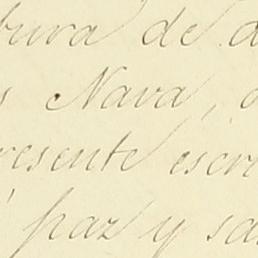 de
Nava,
resente escri
paz y sa